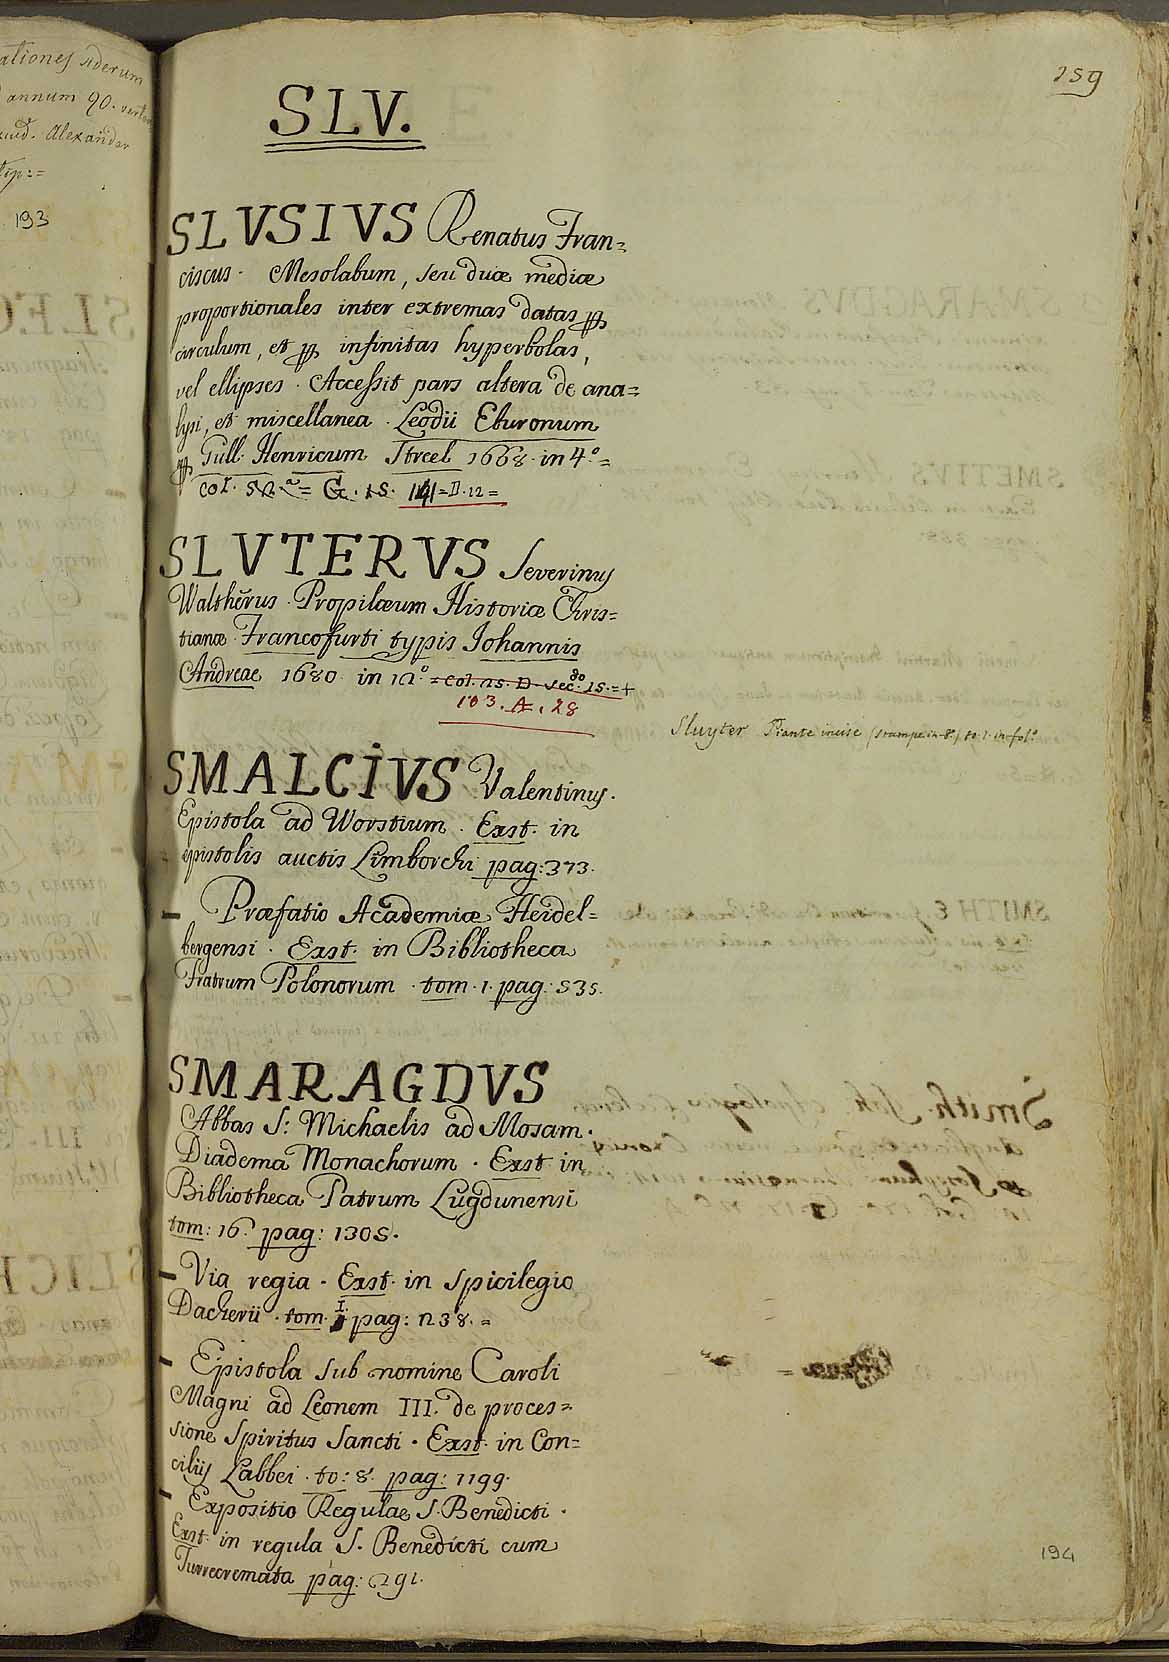 annum 90.
Alexander
193
259
SLV.
SLVSIVS Renatus Fran=
ciscus. Mesolabum, seu duæ mediæ
proportionales inter extremas datas ꝑ
circulum, et ꝑ infinitas hyperbolas,
vel ellipses. Accessit pars altera de ana=
lysi, et miscellanea. Leodii Eburonum
ꝑ Gull. Henricum Streel 1668. in 4.º=
D. 12=
SLVTERVS Severinus
Waltherus. Propilæum Historiæ Chris=
tianæ. Francofurti typis Johannis
Andreae 1680. in 12.º = col. 25. D. sec.do 15. = +
103. A. 28
Sluyter Piante incise (stampe in 8º) to. 1. in folº
SMALCIVS Valentinus.
Epistola ad Worstium. Exst. in
epistolis auctis Limborchi pag: 373.
– Præfatio Academiæ Heidel=
bergensi. Exst. in Bibliotheca
Fratrum Polonorum. tom. 1. pag: 535.
SMARAGDVS
Abbas S: Michaelis ad Mosam.
Diadema Monachorum. Exst in
Bibliotheca Patrum Lugdunensi
tom: 16. pag: 1305.
– Via regia. Exst. in Spicilegio
Dacherii. tom. I. pag: 238. =
– Epistola sub nomine Caroli
Magni ad Leonem III. de proces=
sione Spiritus Sancti. Exst. in Con=
ciliis Labbei. to: 8. pag: 1199.
– Expositio Regulae S. Benedicti.
Exst. in regula S. Benedicti cum
Turrecremata pag: 291.
194